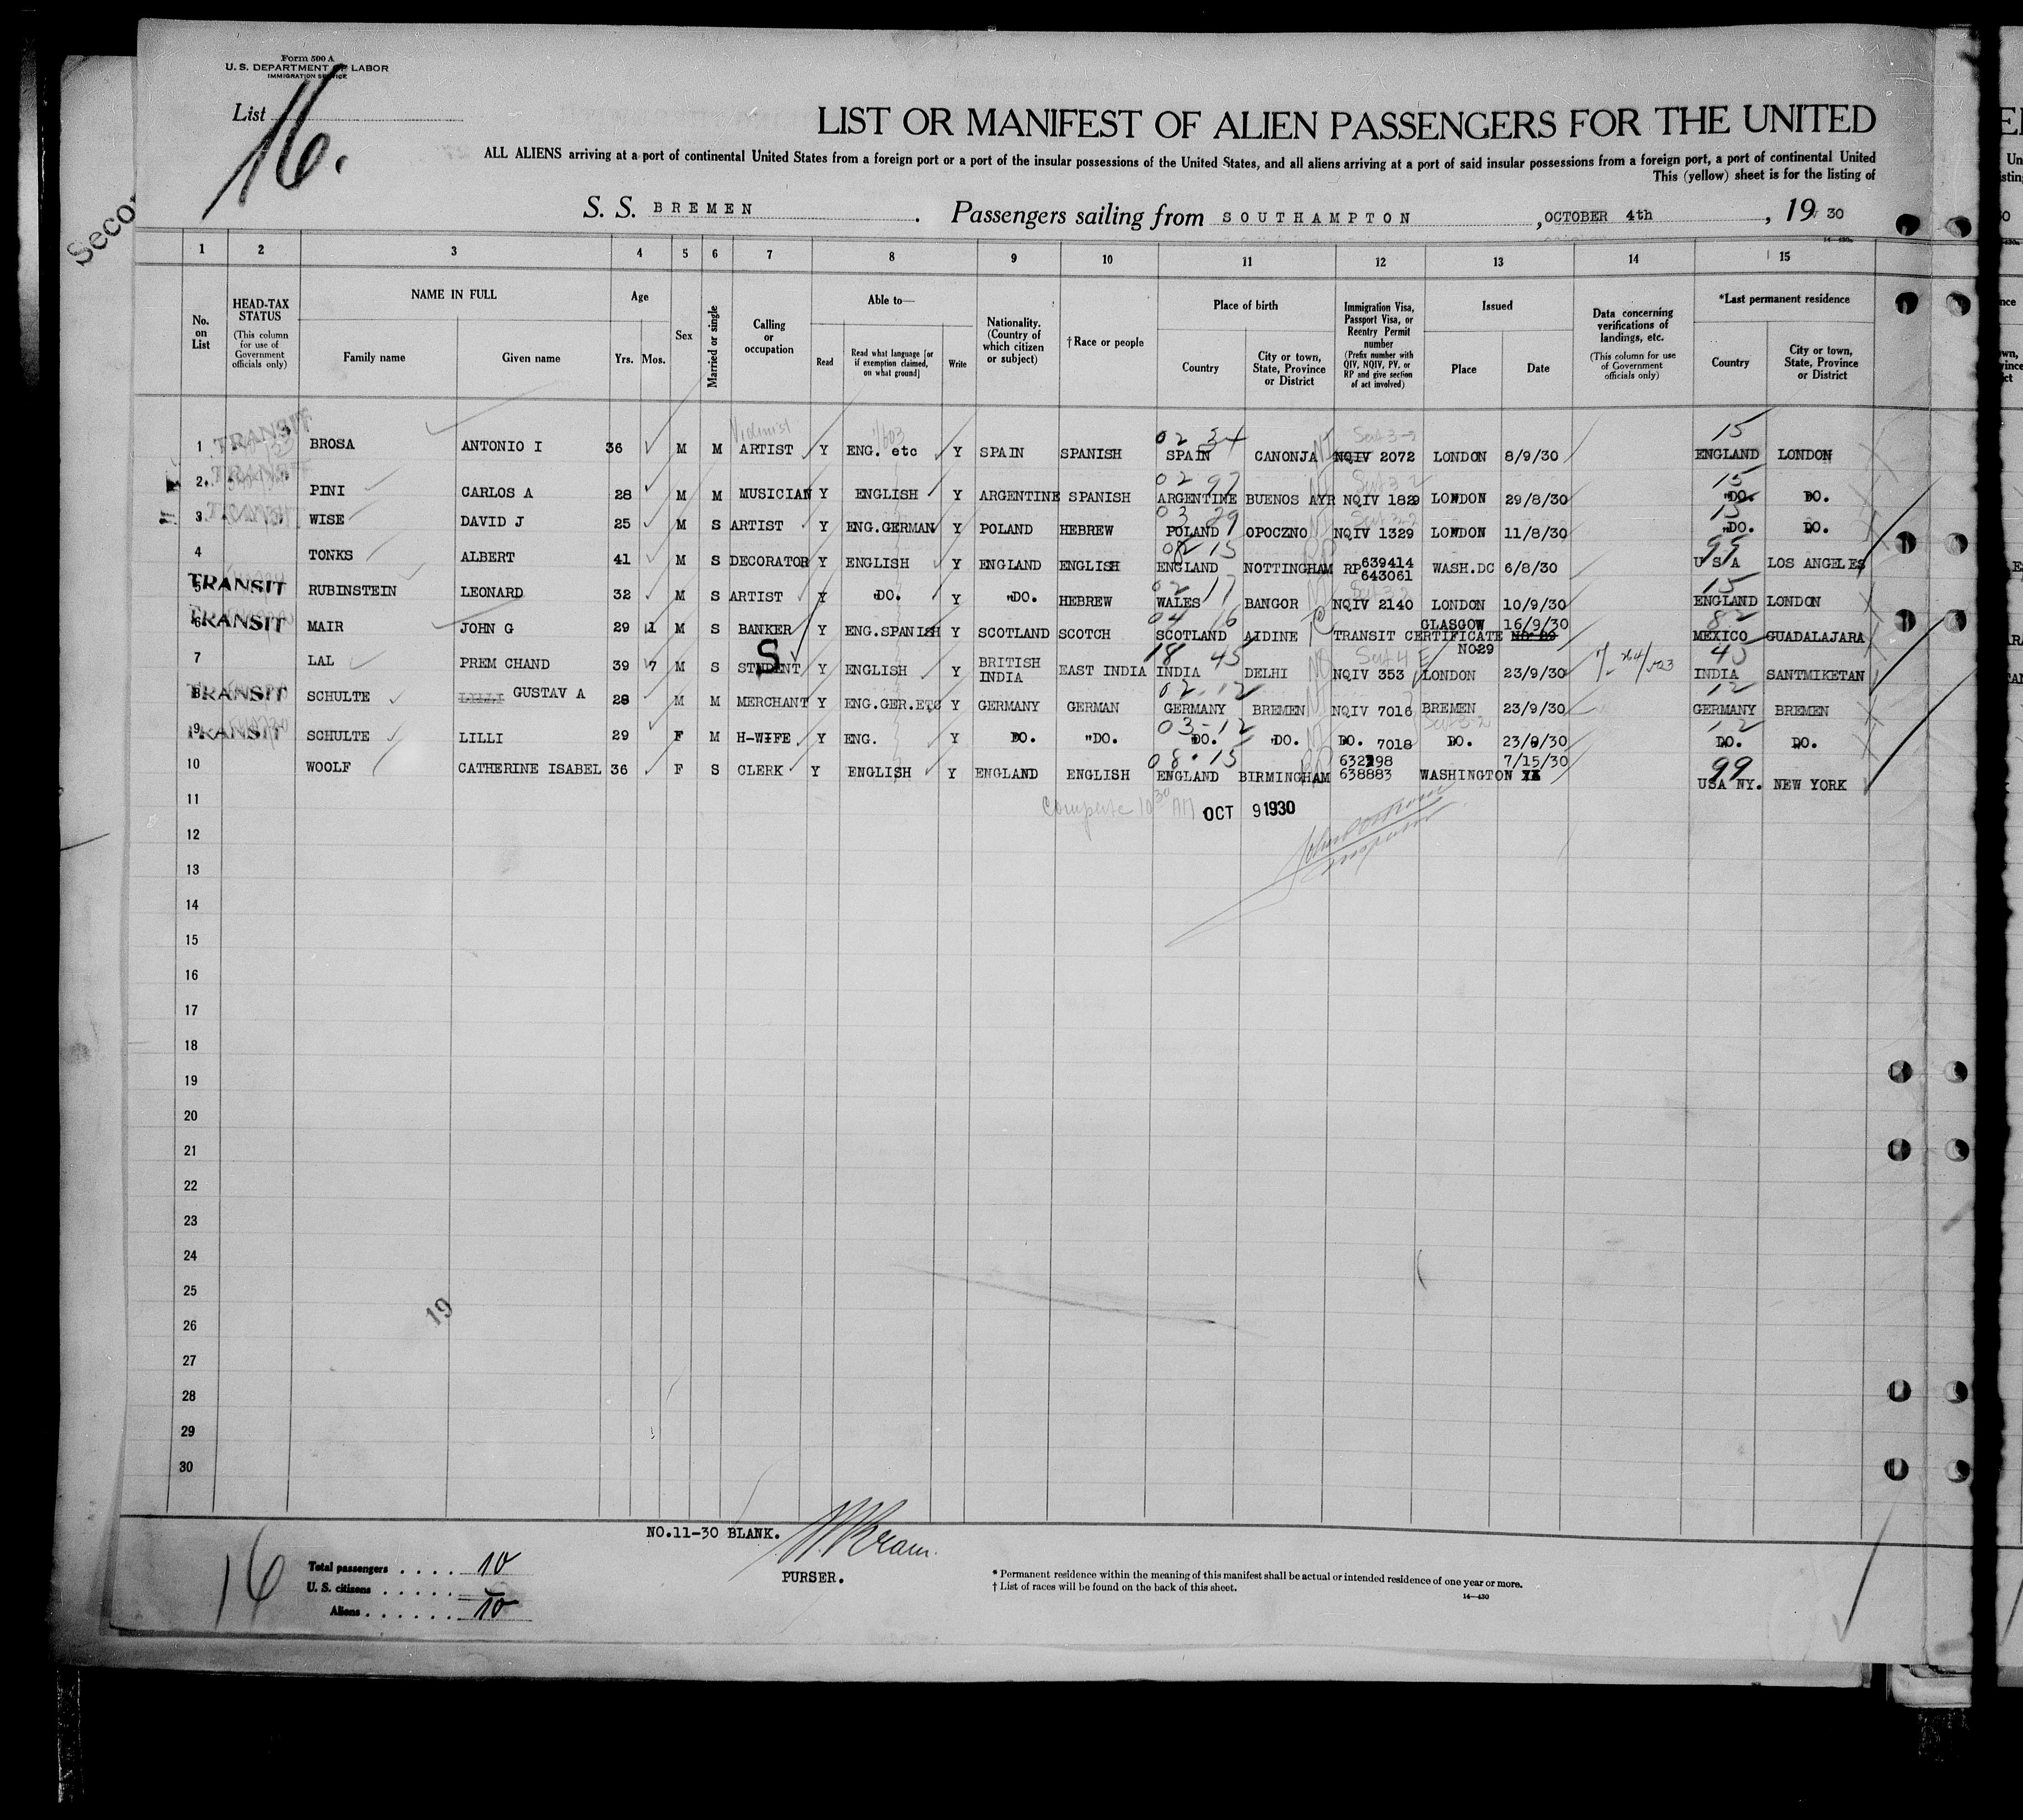 Form 500 A
U. S. DEPARTMENT OF LABOR
IMMIGRATION SERVICE
List 16.
LIST OR MANIFEST OF ALIEN PASSENGERS FOR THE UNITED
ALL ALIENS arriving at a port of continental United States from a foreign port or a port of the insular possessions of the United States, and all aliens arriving at a port of said insular possessions from a foreign port, a port of continental United
This (yellow) sheet is for the listing of
S. S. BREMEN . Passengers sailing from SOUTHAMPTON , OCTOBER 4th , 19 30
1 2 3 4 5 6 7 8 9 10 11 12 13 14 15
No. on List
HEAD-TAX STATUS (This column for use of Government officials only)
NAME IN FULL Family name Given name
Age Yrs. Mos.
Sex
Married or single
Calling or occupation
Able to— Read Read what language [or if exemption claimed, on what ground] Write
Nationality. (Country of which citizen or subject)
†Race or people
Place of birth Country City or town, State, Province or District
Immigration Visa, Passport Visa, or Reentry Permit number (Prefix number with QIV, NQIV, PV, or RP and give section of act involved)
Issued Place Date
Data concerning verifications of landings, etc. (This column for use of Government officials only)
*Last permanent residence Country City or town, State, Province or District
Violinist 02 34 Sect 3-2 15
1 TRANSIT BROSA ANTONIO I 36 M M ARTIST Y ENG. etc Y SPAIN SPANISH SPAIN CANONJA NQIV 2072 LONDON 8/9/30 ENGLAND LONDON
02 97 Sect 3-2 15
2 TRANSIT PINI CARLOS A 28 M M MUSICIAN Y ENGLISH Y ARGENTINE SPANISH ARGENTINE BUENOS AYR NQIV 1829 LONDON 29/8/30 "DO. DO.
03 29 Sect 3-2 15
3 TRANSIT WISE DAVID J 25 M S ARTIST Y ENG.GERMAN Y POLAND HEBREW POLAND OPOCZNO NQIV 1329 LONDON 11/8/30 "DO. DO.
08 15 99
4 TONKS ALBERT 41 M S DECORATOR Y ENGLISH Y ENGLAND ENGLISH ENGLAND NOTTINGHAM RP 639414 643061 WASH.DC 6/8/30 U S A LOS ANGELES
02 17 15
5 TRANSIT RUBINSTEIN LEONARD 32 M S ARTIST Y "DO. Y "DO. HEBREW WALES BANGOR NQIV 2140 LONDON 10/9/30 ENGLAND LONDON
04 16 82
6 TRANSIT MAIR JOHN G 29 1 M S BANKER Y ENG.SPANISH Y SCOTLAND SCOTCH SCOTLAND AIDINE TRANSIT CERTIFICATE NO29 GLASGOW 16/9/30 MEXICO GUADALAJARA
S 18 45 Sect 4 E 45
7 LAL PREM CHAND 39 7 M S STUDENT Y ENGLISH Y BRITISH INDIA EAST INDIA INDIA DELHI NQIV 353 LONDON 23/9/30 INDIA SANTMIKETAN
02-12 12
8 TRANSIT SCHULTE LILLI GUSTAV A 28 M M MERCHANT Y ENG.GER.ETC Y GERMANY GERMAN GERMANY BREMEN NQIV 7016 BREMEN 23/9/30 GERMANY BREMEN
03-12 Sect 3-2 12
9 TRANSIT SCHULTE LILLI 29 F M H-WIFE Y ENG. Y DO. "DO. DO. DO. DO. 7018 DO. 23/9/30 DO. DO.
08-15 99
10 WOOLF CATHERINE ISABEL 36 F S CLERK Y ENGLISH Y ENGLAND ENGLISH ENGLAND BIRMINGHAM 638883 WASHINGTON 7/15/30 USA NY. NEW YORK
11 OCT 9 1930
12
13
14
15
16
17
18
19
20
21
22
23
24
25
19
26
27
28
29
30
NO.11-30 BLANK.
PURSER.
16
Total passengers .... 10
U. S. citizens ..... —
Aliens ...... 10
* Permanent residence within the meaning of this manifest shall be actual or intended residence of one year or more.
† List of races will be found on the back of this sheet.
14—430